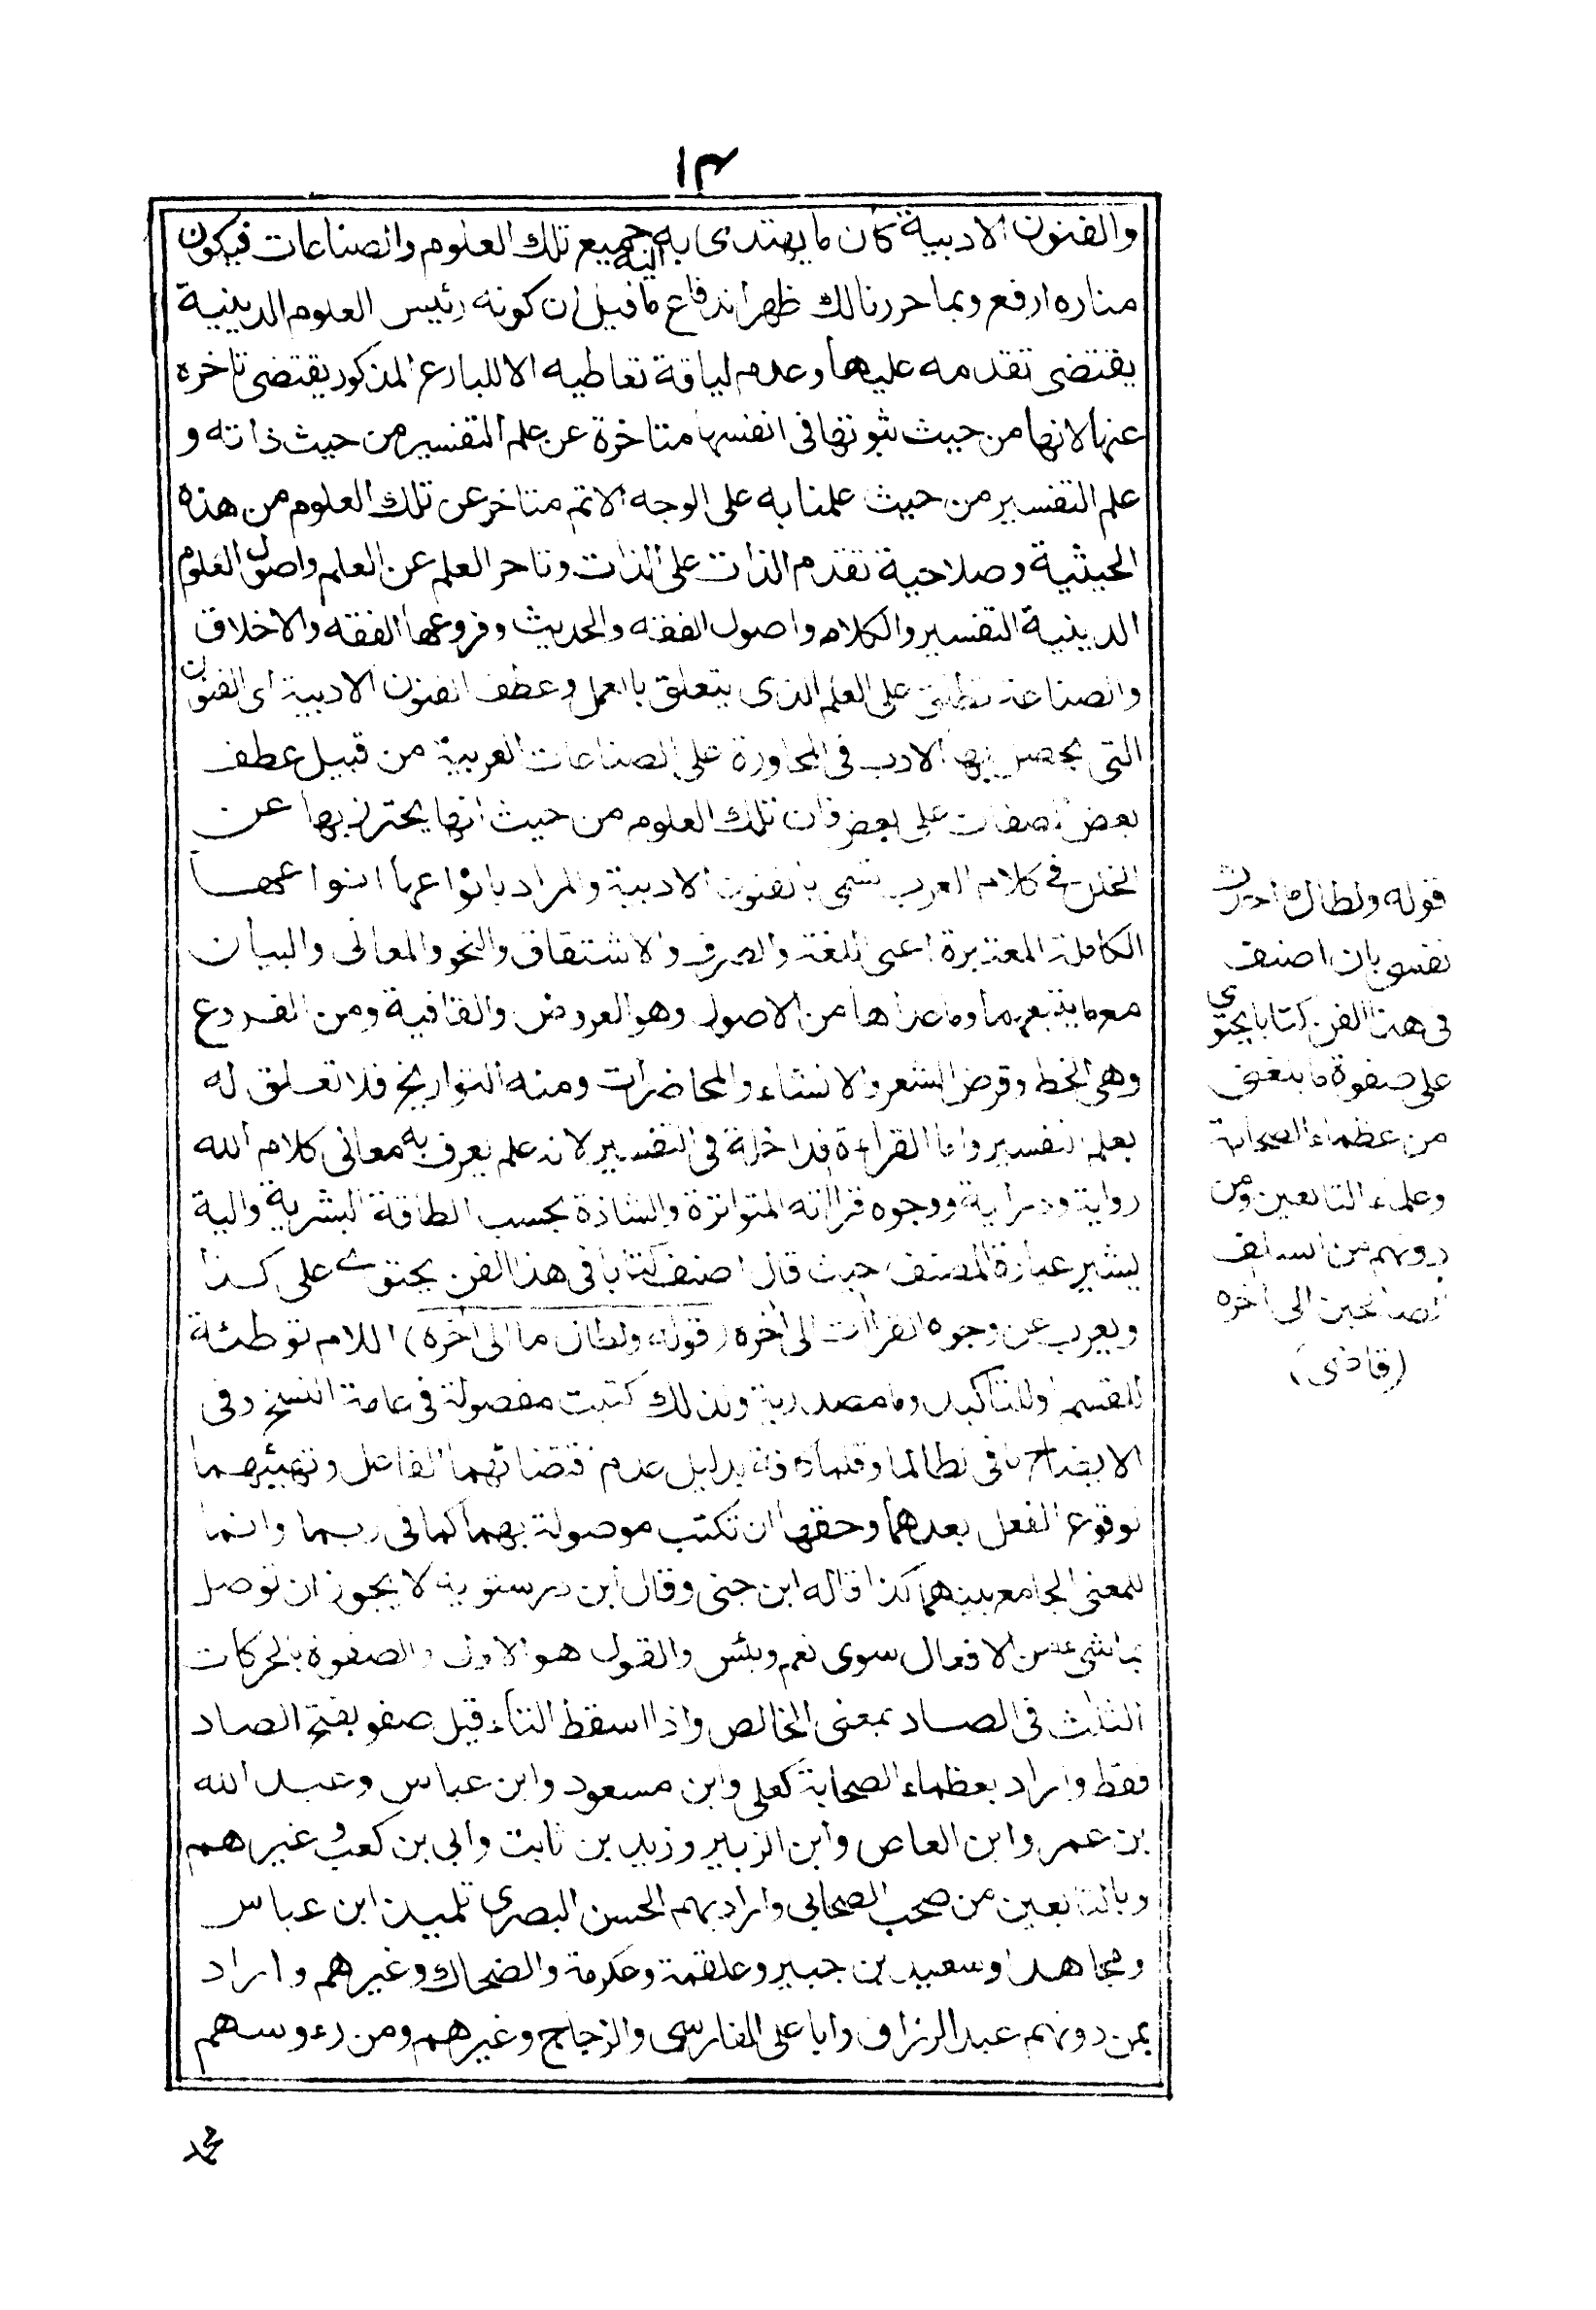 ١٣
والفنون الادبية كان ما يهتدى به اليه جميع تلك العلوم والصناعات فيكون
مناره ارفع وبما حررنا لك ظهر اندفاع ما قيل ان كونه رئيس العلوم الدينية
يقتضى تقدمه عليها وعدم لياقة تعاطيه الا للبارع المذكور يقتضى تاخره
عنها لانها من حيث ثبوتها فى انفسها متاخرة عن علم التفسير من حيث ذاته و
علم التفسير من حيث علمنا به على الوجه الاتم متاخر عن تلك العلوم من هذه
الحيثية وصلاحية تقدم الذات على الذات وتاخر العلم عن العلم واصول العلوم
الدينية التفسير والكلام واصول الفقه والحديث وفروعها الفقه والاخلاق
والصناعة تطلق على العلم الذى يتعلق بالعمل وعطف الفنون الادبية اى الفنون
التى يحصل بها الادب فى المحاورة على الصناعات العربية من قبيل عطف
بعض الصفات على بعض فان تلك العلوم من حيث انها يحترز بها عن
الخلل فى كلام العرب تسمى بالفنون الادبية والمراد بانواعها انواعها
الكاملة المعتبرة اعنى اللغة والصرف والاشتقاق والنحو والمعانى والبيان
مع ما يتبعهما وما عداها من الاصول وهو العروض والقافية ومن الفروع
وهى الخط وقرض الشعر والانشاء والمحاضرات ومنه التواريخ فلا تعلق له
بعلم التفسير واما القراءة فداخلة فى التفسير لانه علم يعرف به معانى كلام الله
رواية ودراية ووجوه قراآته المتواترة والشاذة بحسب الطاقة البشرية والية
يشير عبارة المصنف حيث قال اصنف كتابا فى هذا الفن يحتوى على كذا
ويعرب عن وجوه القراآت الى اخره (قوله ولطال ما الى اخره) اللام توطئة
للقسم او للتاكيد وما مصدرية ولذلك كتبت مفصولة فى عامة النسخ وفى
الايضاح ما فى لطالما وقلما كافة بدليل عدم اقتضائهما الفاعل وتهيئهما
لوقوع الفعل بعدهما وحقها ان تكتب موصولة بهما كما فى ربما وانما
للمعنى الجامع بينهما كذا قاله ابن جنى وقال ابن درستويه لا يجوز ان توصل
بما شى من الافعال سوى نعم وبئس والقول هو الاول والصفوة بالحركات
الثلث فى الصاد بمعنى الخالص واذا اسقط التاء قيل صفو بفتح الصاد
فقط واراد بعظماء الصحابة كعلى وابن مسعود وابن عباس وعبد الله
بن عمر وابن العاص وابن الزبير وزيد بن ثابت وابى بن كعب وغيرهم
وبالتابعين من صحب الصحابى واراد بهم الحسن البصرى تلميذ ابن عباس
ومجاهدا وسعيد بن جبير وعلقمة وعكرمة والضحاك وغيرهم واراد
بمن دونهم عبد الرزاق وابا على الفارسى والزجاج وغيرهم ومن رءوسهم
محمد
قوله ولطال احدث
نفسى بان اصنف
فى هذا الفن كتابا يحتوى
على صفوة ما بلغنى
من عظماء الصحابة
وعلماء التابعين ومن
دونهم من السلف
الصالحين الى اخره
(قاضى)